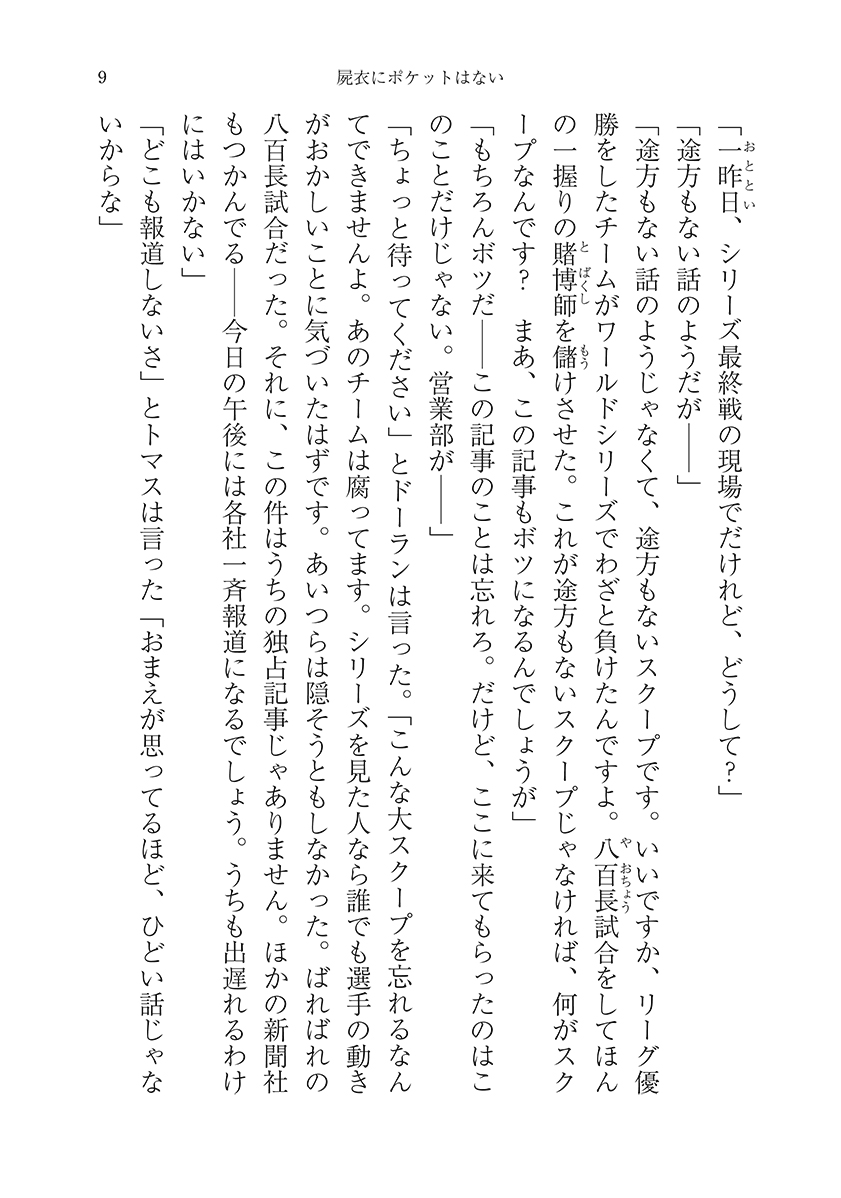 9
屍衣にポケットはない
「一昨日、シリーズ最終戦の現場でだけれど、どうして？」
「途方もない話のようだが――」
「途方もない話のようじゃなくて、途方もないスクープです。いいですか、リーグ優
勝をしたチームがワールドシリーズでわざと負けたんですよ。八百長試合をしてほん
の一握りの賭博師を儲けさせた。これが途方もないスクープじゃなければ、何がスク
ープなんです？　まあ、この記事もボツになるんでしょうが」
「もちろんボツだ――この記事のことは忘れろ。だけど、ここに来てもらったのはこ
のことだけじゃない。営業部が――」
「ちょっと待ってください」とドーランは言った。「こんな大スクープを忘れるなん
てできませんよ。あのチームは腐ってます。シリーズを見た人なら誰でも選手の動き
がおかしいことに気づいたはずです。あいつらは隠そうともしなかった。ばればれの
八百長試合だった。それに、この件はうちの独占記事じゃありません。ほかの新聞社
もつかんでる――今日の午後には各社一斉報道になるでしょう。うちも出遅れるわけ
にはいかない」
「どこも報道しないさ」とトマスは言った「おまえが思ってるほど、ひどい話じゃな
いからな」